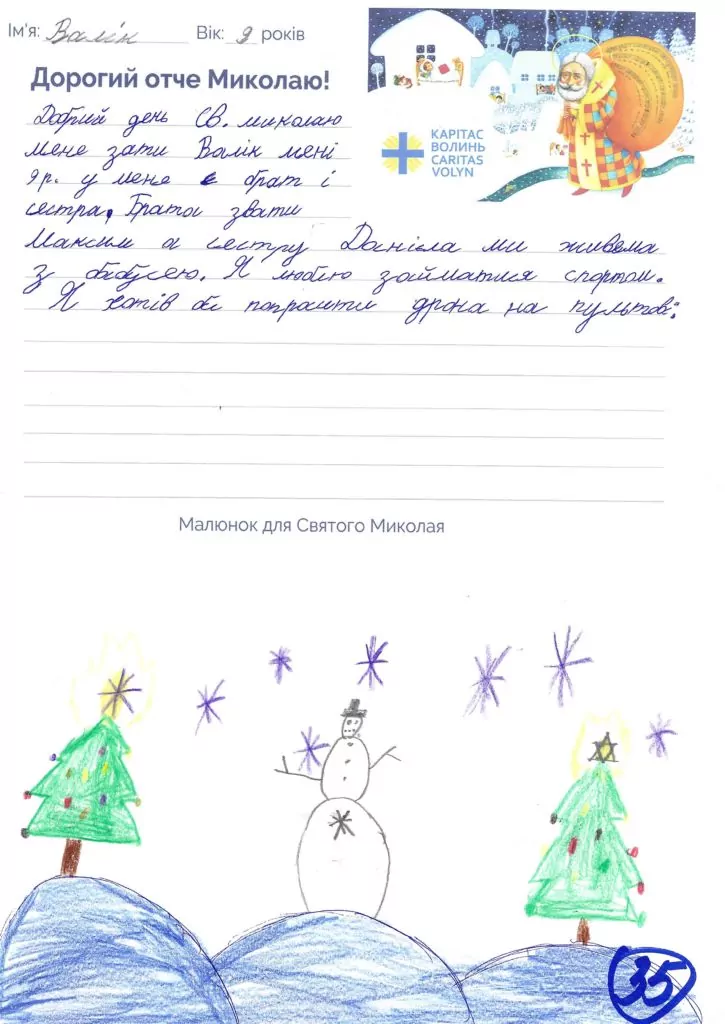 Ім'я: Валік Вік: 9 років
Дорогий отче Миколаю!
КАРІТАС
ВОЛИНЬ
CARITAS
VOLYN
Добрий день Св. миколаю
мене зати Валік мені
9р. у мене є брат і
сестра. Брата звати
Максим а сестру Даніела ми живема
з бабусею. Я люблю займатися спортом.
Я хотів би попрасити дрона на пультові.
Малюнок для Святого Миколая
35